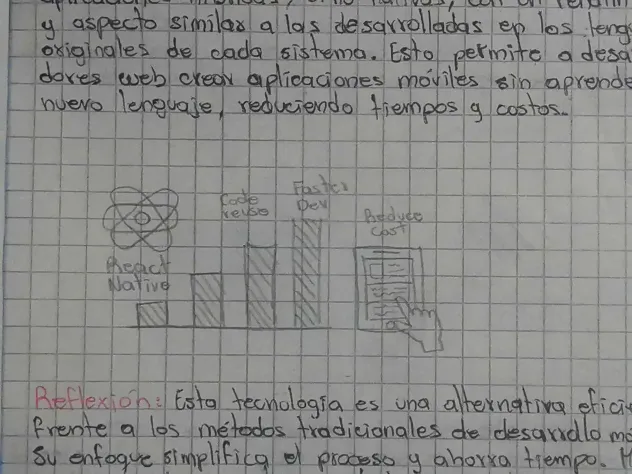 y aspecto similar a las desarrolladas en los
originales de cada sistema. Esto permite a
dores web crear aplicaciones móviles sin
nuevo lenguaje, reduciendo tiempos y costos.
React
Native
Code
reuse
Faster
Dev
Reduce
Cost
Reflexión: Esta tecnología es una alternativa
frente a los métodos tradicionales de desarrollo
Su enfoque simplifica el proceso y ahorra tiempo.